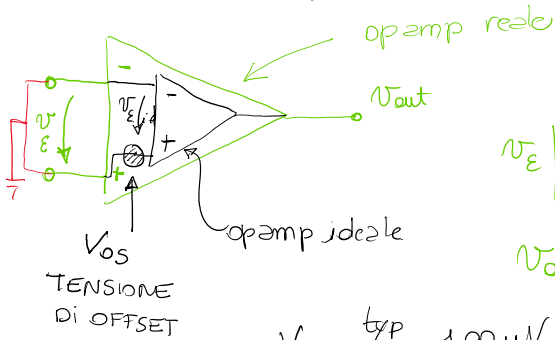 opamp reale
-
-
Vout
Vε
Vε id
+
+
Vε
opamp ideale
Vos
TENSIONE
DI OFFSET
typ
100 μV